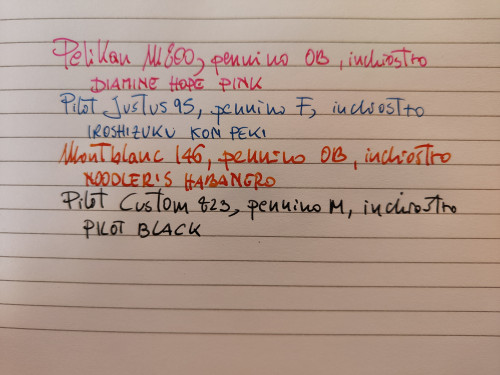 Pelikan M800, pennino OB, inchiostro
DIAMINE HOPE PINK
Pilot Justus 95, pennino F, inchiostro
IROSHIZUKU KON PEKI
Montblanc 146, pennino OB, inchiostro
NOODLER'S HABANERO
Pilot Custom 823, pennino M, inchiostro
PILOT BLACK